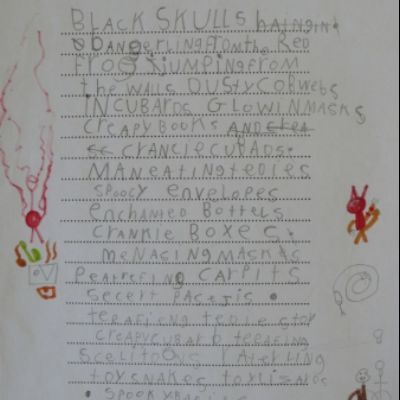 BLACK SKULLS hAINGIN
DANgerLINgFROMthe Red
FroG JUMPINGFROM
the WALLS DUSTYCOBWEBS
INCUBARDS GLOWINMASKS
CreAPYBOOKS AND
CRANCIECUPADS.
MANeATINGTEDIES
SPOOCY envELOPES
enchANted BOTTELS
CRANKIE BOXES.
MeNACINGMASKAS
PeATreFING CARPITS
SeCeIt PACEJIS.
teRAFIENG
CREAPYCUBARD teRAFING
SCeLITOONS RATteLING
TOYSNAKES TOYLISADS